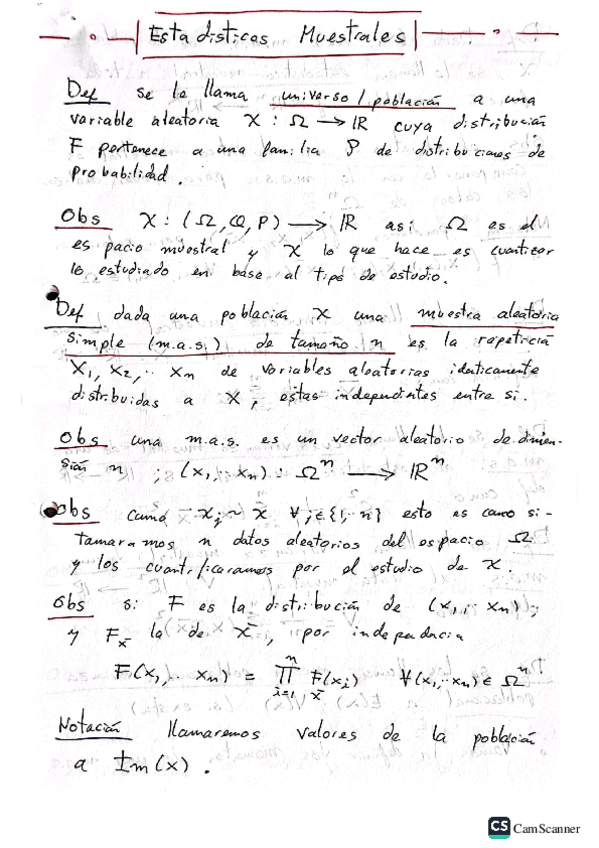 Estadisticas Muestrales
Def se le llama universo/población a una
variable aleatoria X : Ω → IR cuya distribución
F pertenece a una familia P de distribuciones de
probabilidad.
Obs X : (Ω, Q, P) → IR asi Ω es el
espacio muestral y X lo que hace es cuantizar
lo estudiado en base al tipo de estudio.
Def dada una población X una muestra aleatoria
simple (m.a.s.) de tamaño n es la repetición
X₁, X₂, ·· Xn de variables aleatorias identicamente
distribuidas a X, estas independientes entre si.
Obs una m.a.s. es un vector aleatorio de dimen-
sión n ; (x₁, ·· xn) : Ωⁿ → IRⁿ
Obs como xj ~ X ∀ j ∈ {1, ·· n} esto es como si-
tomaramos n datos aleatorios del espacio Ω
y los cuantificaramos por el estudio de X.
Obs si F es la distribución de (x₁, ·· xn);
y Fx la de X, por independencia
F(x₁, ·· xn) = ∏ⁿᵢ₌₁ Fx(xi) ∀(x₁, ·· xn) ∈ Ωⁿ
Notación llamaremos valores de la población
a Im(x).
CS CamScanner